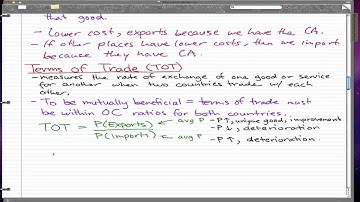 that good.
- Lower cost, exports because we have the CA.
- If other places have lower costs, then we import
because they have CA.
Terms of Trade (TOT)
- measures the rate of exchange of one good or service
for another when two countries trade w/ each
other.
- To be mutually beneficial = terms of trade must
be within OC ratios for both countries.
TOT = P(Exports) ← avg P - P↑, unique good, improvement
- P↓, deterioration
P(Imports) ← avg P - P↑, deterioration.